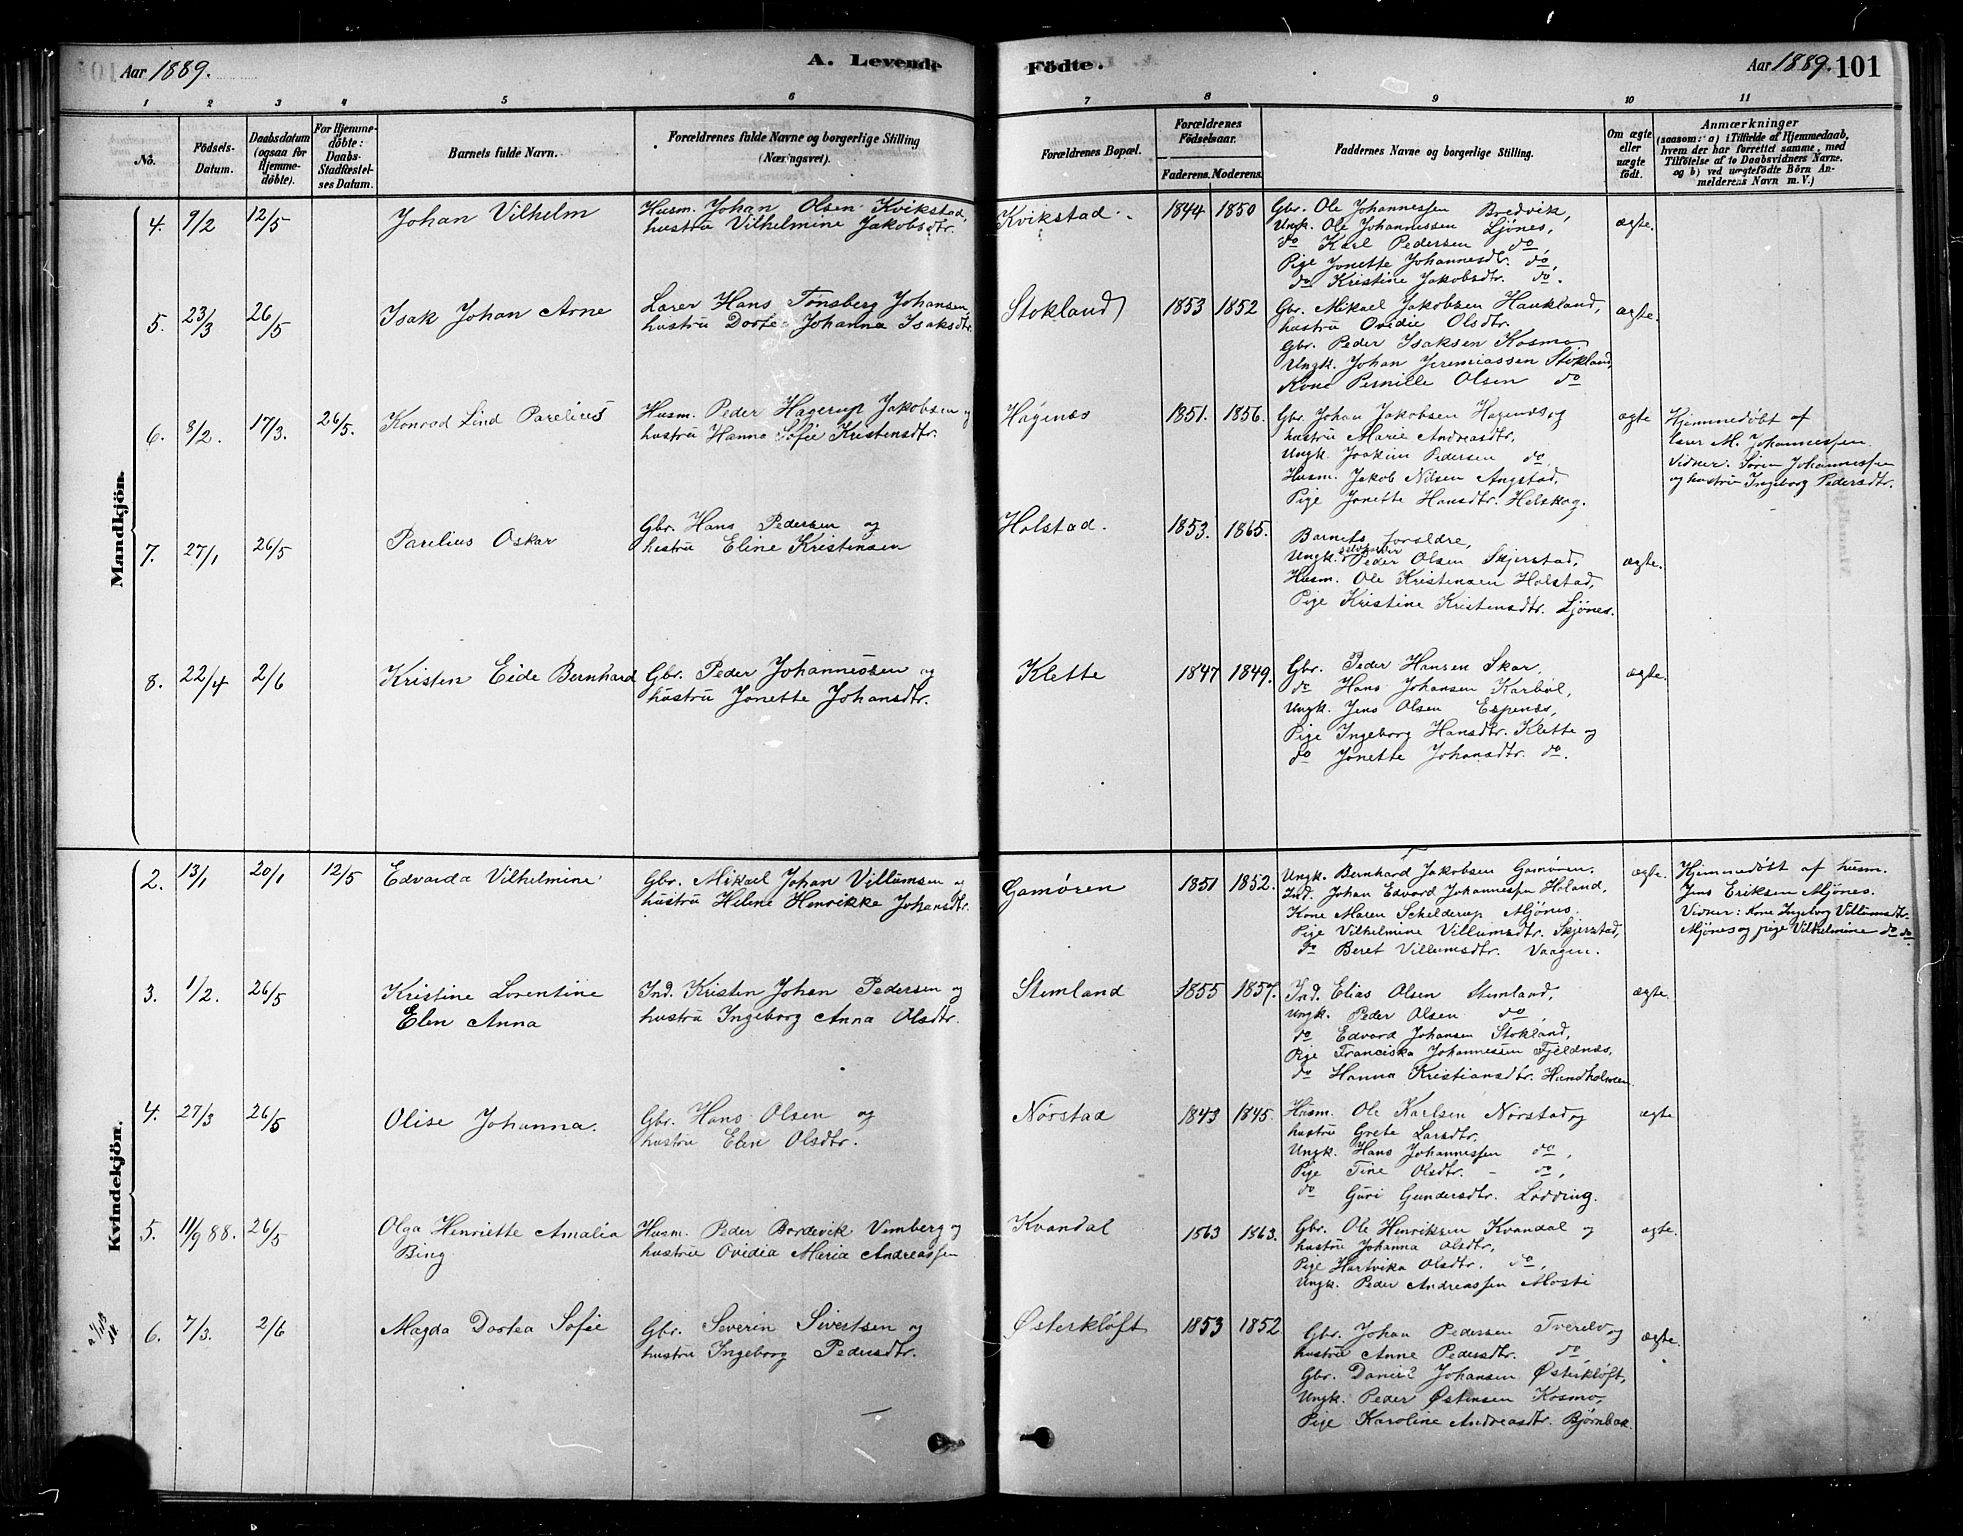 Aar 1889.
A. Levende
Födte.
Aar 1889. 101
1 2 3 4 5 6 7 8 9 10 11
No.
Födsels-Datum.
Daabsdatum (ogsaa for Hjemme-döbte).
For Hjemme-döbte: Daabs-Stadfæstel-ses Datum.
Barnets fulde Navn.
Forældrenes fulde Navne og borgerlige Stilling
(Næringsvei).
Forældrenes Bopæl.
Forældrenes Födselsaar.
Faderens. Moderens.
Faddernes Navne og borgerlige Stilling.
Om ægte eller uægte födt.
Anmærkninger
(saasom: a) i Tilfælde af Hjemmedaab,
hvem der har forrettet samme, med
Tilföielse af to Daabsvidners Navne.
og b) ved uægtefödte Börn An-
melderens Navn m. V.)
Mandkjön.
4. 9/2 12/5 Johan Vilhelm
Husm. Johan Olsen Kvikstad,
hustru Vilhelmine Jakobsdtr.
Kvikstad. 1844 1850
Gbr. Ole Johannessen Bredvik,
Ungk. Ole Johannessen Ljönes,
do Karl Pedersen do,
Pige Jonette Johannesdtr. do,
do Kristine Jakobsdtr. do.
ægte.
5. 23/3 26/5 Isak Johan Arne
Lærer Hans Tønsberg Johansen,
hustru Dortea Johanna Isaksdtr.
Stokland 1853 1852
Gbr. Mikael Jakobsen Haukland,
hustru Ovidie Olsdtr.
Gbr. Peder Isaksen Kosmo
Ungk. Johan Jeremiassen Stokland,
Kone Pernille Olsen do
ægte.
6. 8/2. 17/3. 26/5. Konrad Lind Parelius
Husm. Peder Hagerup Jakobsen og
hustru Hanna Sofie Kristensdtr.
Høgenæs 1851. 1856.
Gbr. Johan Jakobsen Hagenæs og
hustru Marie Andreasdtr,
Ungk. Joakim Pedersen do,
Husm. Jakob Nilsen Angstad,
Pige Jonette Hansdtr. Helskog.
ægte
Hjemmedöbt af
lærer M. Johannessen.
Vidner: Sören Johannessen
og hustru Ingeborg Pedersdtr.
7. 27/1 26/5 Parelius Oskar
Gbr. Hans Pedersen og
hustru Eline Kristensen
Holstad. 1853. 1865.
Barnets forældre,
Ungk. Peder Olsen Skjerstad,
Husm. Ole Kristensen Holstad,
Pige Kristine Kristensdtr. Ljönes.
ægte.
8. 22/4 2/6 Kristen Eide Bernhard
Gbr. Peder Johannessen og
hustru Jonette Johansdtr.
Klette 1847 1849.
Gbr. Peder Hansen Skar,
do Hans Johansen Karböl,
Ungk. Jens Olsen Espenæs,
Pige Ingeborg Hansdtr. Klette og
do Jonette Johansdtr. do.
ægte.
Kvindekjön.
2. 13/1 20/1 12/5 Edvarda Vilhelmine
Gbr. Mikael Johan Villumsen og
hustru Helene Henrikke Johansdtr.
Gamøren 1851 1852.
Ungk. Bernhard Jakobsen Gamøren.
Ind. Johan Edvard Johannessen Høland,
Kone Maren Schelderup Mjønes
Pige Vilhelmine Villumsdtr. Skjerstad,
do Beret Villumsdtr. Vaagen.
ægte.
Hjemmedöbt af husm.
Jens Eriksen Mjønes.
Vidner: Kone Ingeborg Villumsdtr.
Mjønes og pige Vilhelmine do do
3. 1/2. 26/5 Kristine Lorentine
Elen Anna
Ind. Kristen Johan Pedersen og
hustru Ingeborg Anna Olsdtr.
Stemland 1855 1857.
Ind. Elias Olsen Stemland,
Ungk. Peder Olsen do,
do Edvard Johansen Stokland,
Pige Franciska Johannessen Fjeldnæs,
do Hanna Kristiansdtr. Hundholmen.
ægte.
4. 27/3 26/5 Olise Johanna.
Gbr. Hans Olsen og
hustru Elen Olsdtr.
Nørstad 1843 1845.
Husm. Ole Karlsen Nørstad og
hustru Grete Larsdtr.
Ungk. Hans Johannessen do,
Pige Tine Olsdtr. - do,
do Guri Gundersdtr. Lodding.
ægte
5. 11/9 88. 26/5 Olga Henriette Amalia
Bing
Husm. Peder Bordevik Vimberg og
hustru Ovidia Maria Andreassen
Kvandal 1863 1863.
Gbr. Ole Henriksen Kvandal og
hustru Johanna Olsdtr,
Pige Hartvika Olsdtr. do,
Ungk. Peder Andreassen Mosti
ægte.
6. 7/3. 2/6 Magda Dortea Sofie
Gbr. Severin Sivertsen og
hustru Ingeborg Pedersdtr.
Østerkløft 1853 1852
Gbr. Johan Pedersen Tverelv og
hustru Anne Pedersdtr. do,
Gbr. Daniel Johansen Østerkløft,
Ungk. Peder Østensen Kosmo,
Pige Karoline Andreasdtr. Bjørnbak
ægte.